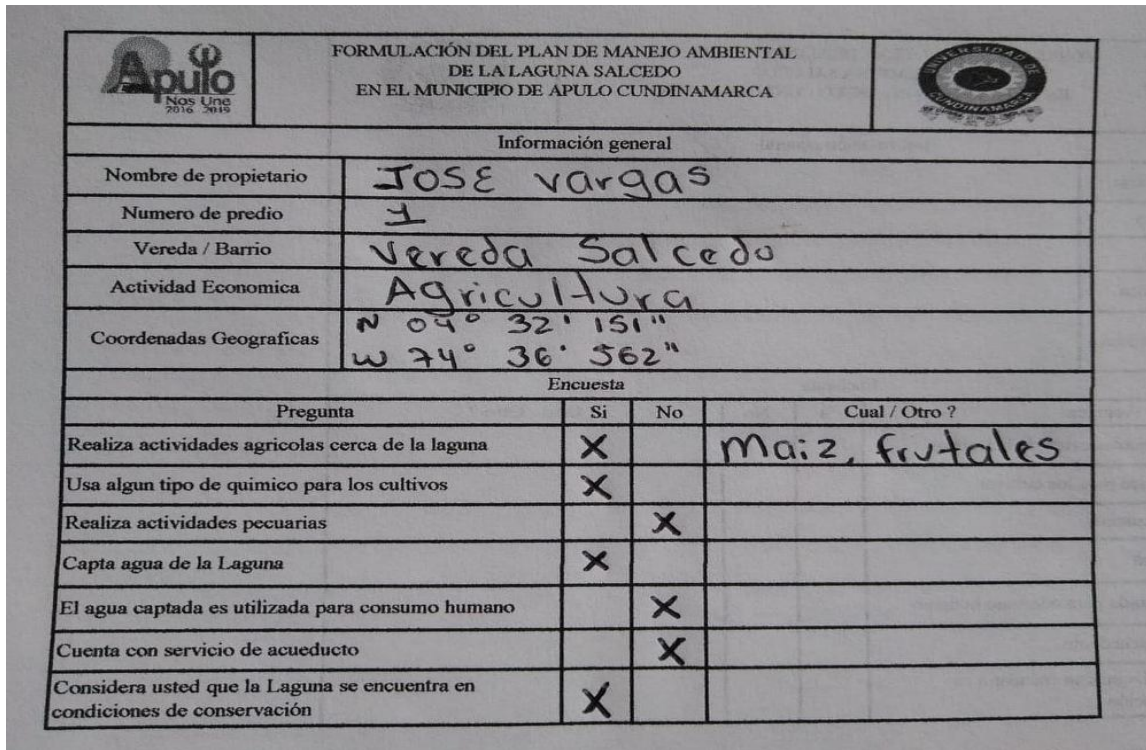 Apulo
Nos Une
2016 2019
FORMULACIÓN DEL PLAN DE MANEJO AMBIENTAL
DE LA LAGUNA SALCEDO
EN EL MUNICIPIO DE APULO CUNDINAMARCA
UNIVERSIDAD DE
CUNDINAMARCA
Información general
Nombre de propietario JOSE vargas
Numero de predio 1
Vereda / Barrio Vereda Salcedo
Actividad Economica Agricultura
Coordenadas Geograficas N 04° 32' 151"
W 74° 36' 562"
Encuesta
Pregunta Si No Cual / Otro ?
Realiza actividades agricolas cerca de la laguna X Maiz, frutales
Usa algun tipo de quimico para los cultivos X
Realiza actividades pecuarias X
Capta agua de la Laguna X
El agua captada es utilizada para consumo humano X
Cuenta con servicio de acueducto X
Considera usted que la Laguna se encuentra en
condiciones de conservación X